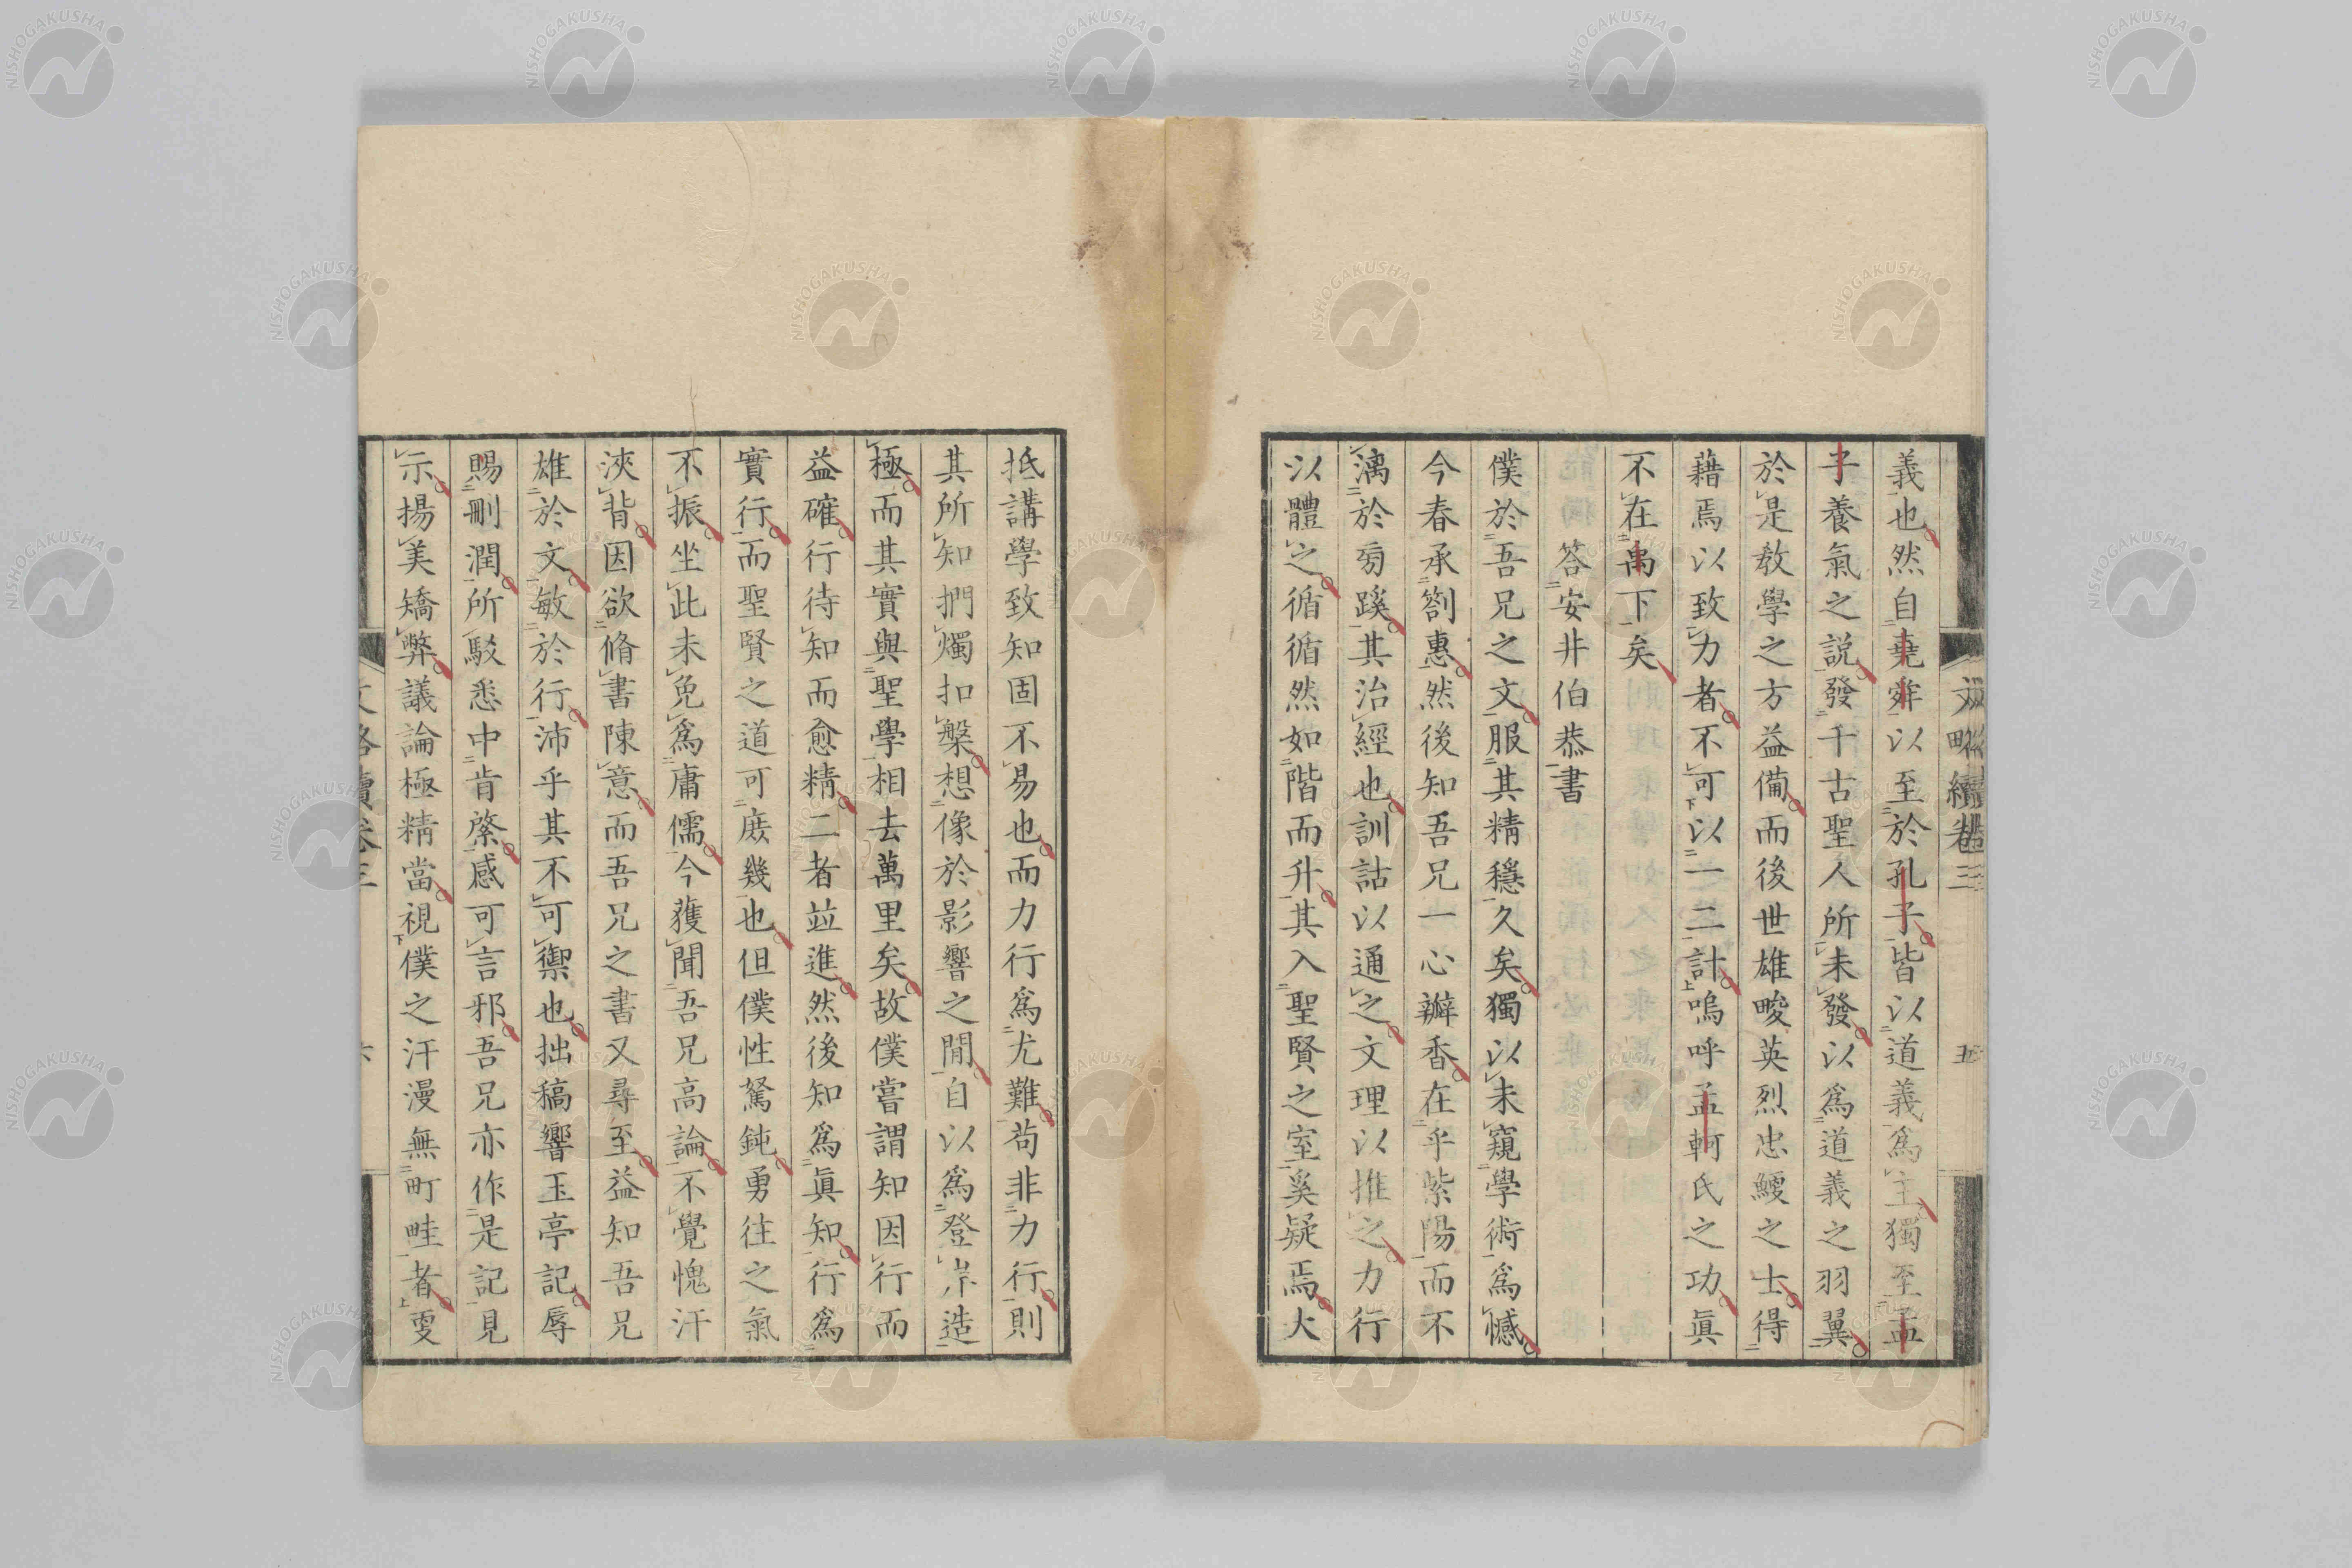 義也然自堯舜以至於孔子皆以道義爲主獨至孟
子養氣之説發千古聖人所未發以爲道義之羽翼
於是敎學之方益備而後世雄畯英烈忠鯁之士得
藉焉以致力者不可以一二計嗚呼孟軻氏之功眞
不在禹下矣
答安井伯恭書
僕於吾兄之文服其精穩久矣獨以未窺學術爲憾
今春承劄惠然後知吾兄一心瓣香在乎紫陽而不
漓於旁蹊其治經也訓詁以通之文理以推之力行
以體之循循然如階而升其入聖賢之室奚疑焉大
抵講學致知固不易也而力行爲尤難苟非力行則
其所知捫燭扣槃想像於影響之間自以爲登岸造
極而其實與聖學相去萬里矣故僕嘗謂知因行而
益確行待知而愈精二者竝進然後知爲眞知行爲
實行而聖賢之道可庶幾也但僕性駑鈍勇往之氣
不振坐此未免爲庸儒今獲聞吾兄高論不覺愧汗
浹背因欲脩書陳意而吾兄之書又尋至益知吾兄
雄於文敏於行沛乎其不可禦也拙稿響玉亭記辱
賜刪潤所駁悉中肯綮感可言邪吾兄亦作是記見
示揚美矯弊議論極精當視僕之汗漫無町畦者雯
文略續卷三
五
NISHOGAKUSHA